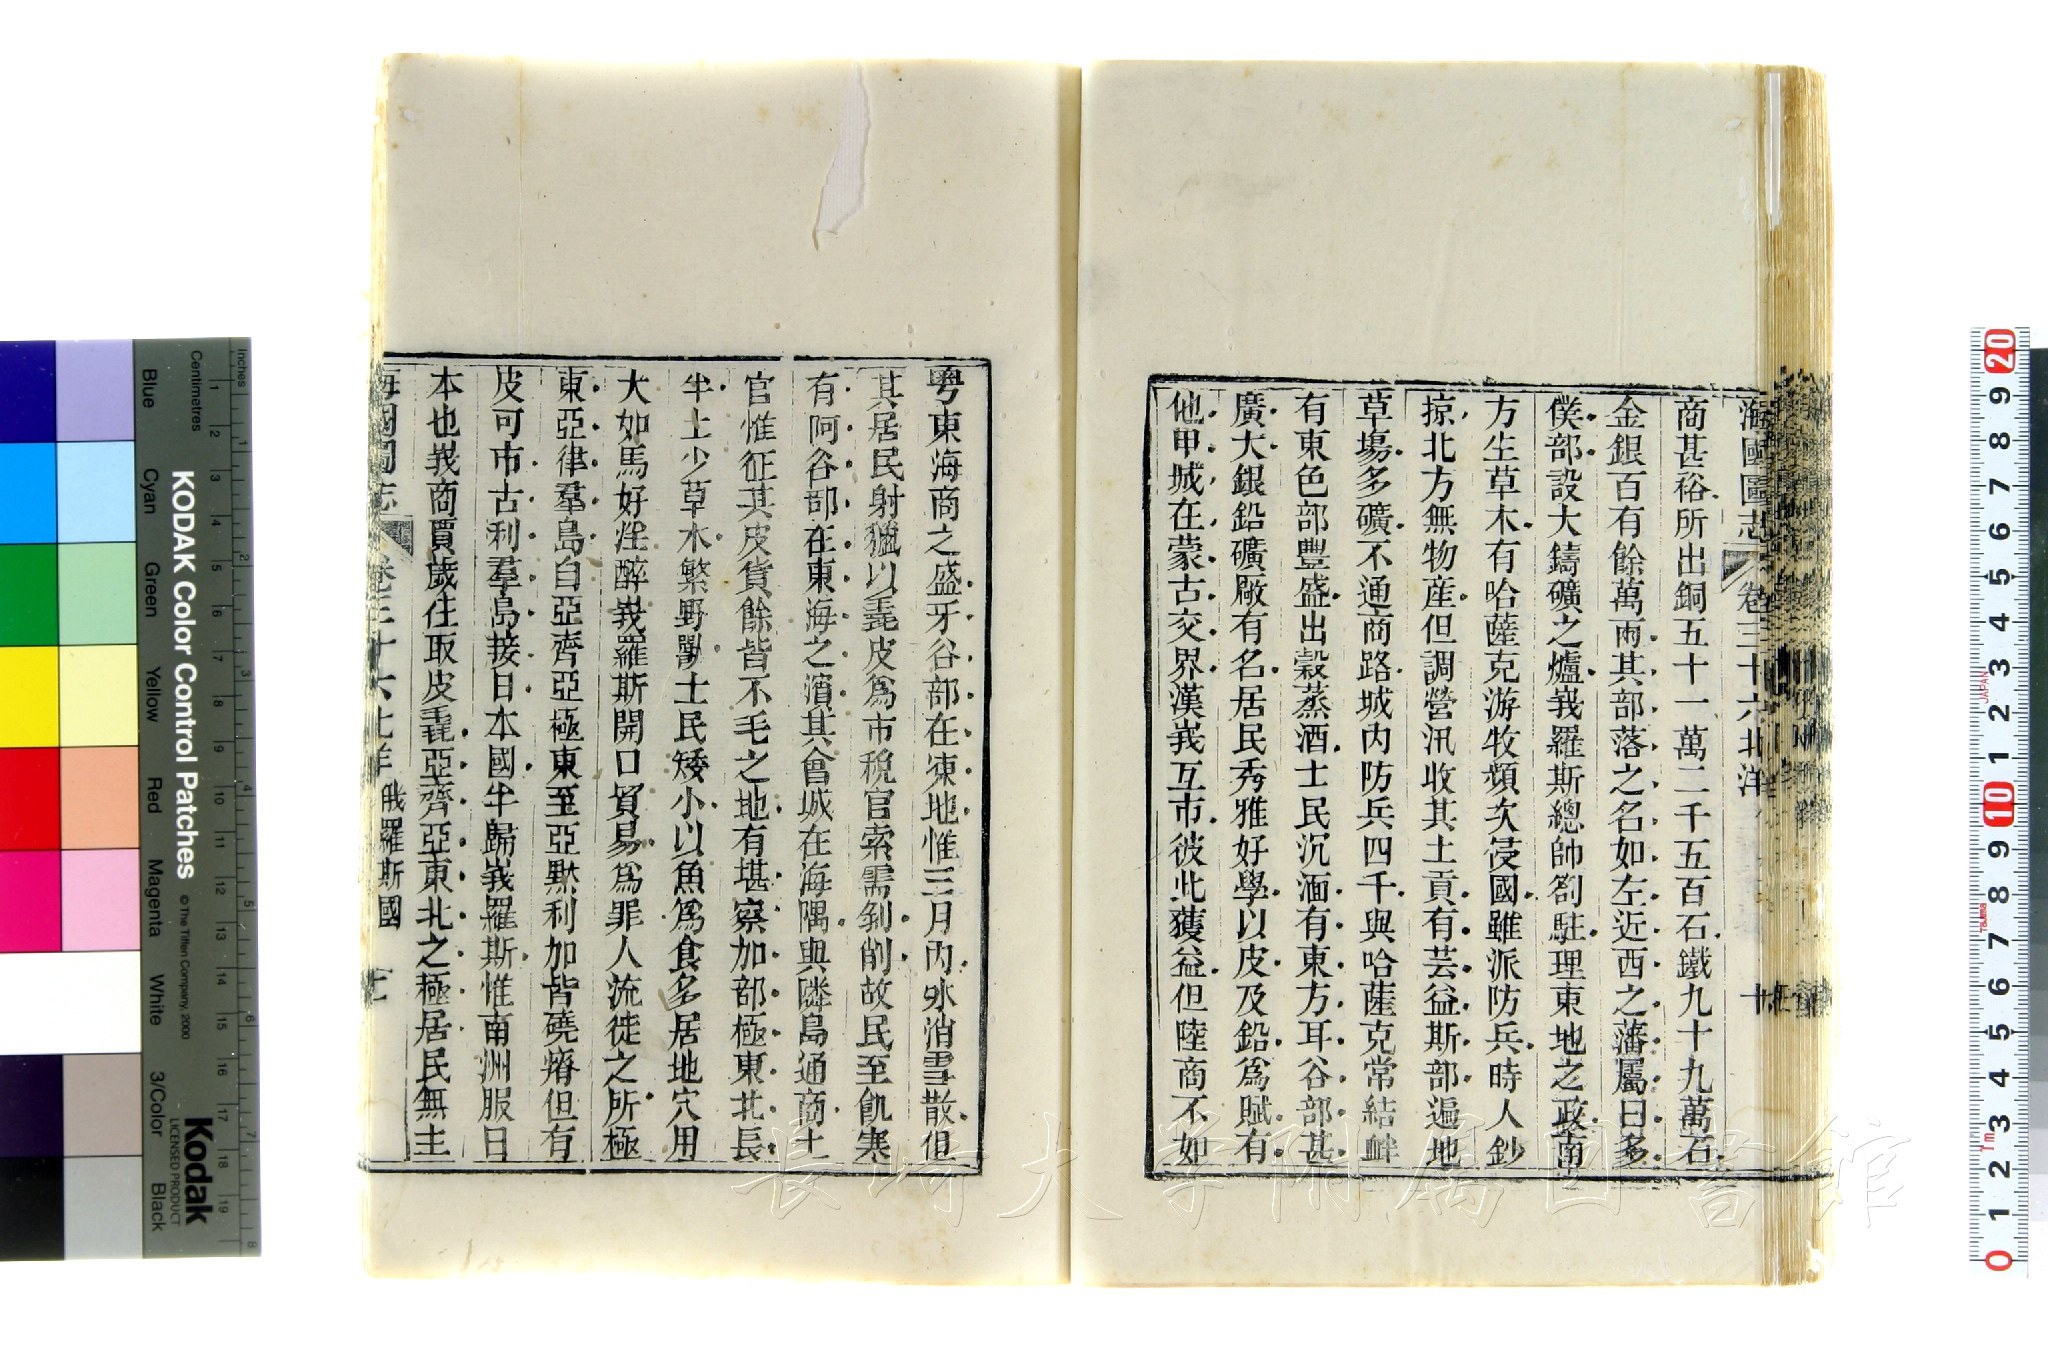 海國圖志 卷三十六 北洋 十
商甚裕所出銅五十一萬二千五百石鐵九十九萬石
金銀百有餘萬兩其部落之名如左近西之藩屬曰多
僕部設大鑄礦之爐峩羅斯總帥劄駐理東地之政南
方生草木有哈薩克游牧頻次侵國雖派防兵時人鈔
掠北方無物産但調營汛收其土貢有芸益斯部遍地
草塲多礦不通商路城內防兵四千與哈薩克常結衅
有東色部豐盛出穀蒸酒士民沉湎有東方耳谷部甚
廣大銀鉛礦厰有名居民秀雅好學以皮及鉛爲賦有
他甲城在蒙古交界漢峩互市彼此獲益但陸商不如
粤東海商之盛牙谷部在凍地惟三月內氷消雪散但
其居民射獵以毳皮爲市稅官索需剝削故民至飢寒
有阿谷部在東海之濱其會城在海隅與隣島通商土
官惟征其皮貨餘皆不毛之地有堪察加部極東北長
半土少草木繁野獸土民矮小以魚爲食多居地穴用
犬如馬好淫醉峩羅斯開口貿易爲罪人流徒之所極
東亞律羣島自亞齊亞極東至亞黙利加皆磽瘠但有
皮可市古利羣島接日本國半歸峩羅斯惟南洲服日
本也峩商賈歲往取皮毳亞齊亞東北之極居民無主
海國圖志 卷三十六 北洋 俄羅斯國 十一
Inches
Centimetres
KODAK Color Control Patches
© The Tiffen Company, 2000
Kodak
LICENSED PRODUCT
Blue Cyan Green Yellow Red Magenta White 3/Color Black
長崎大学附属図書館